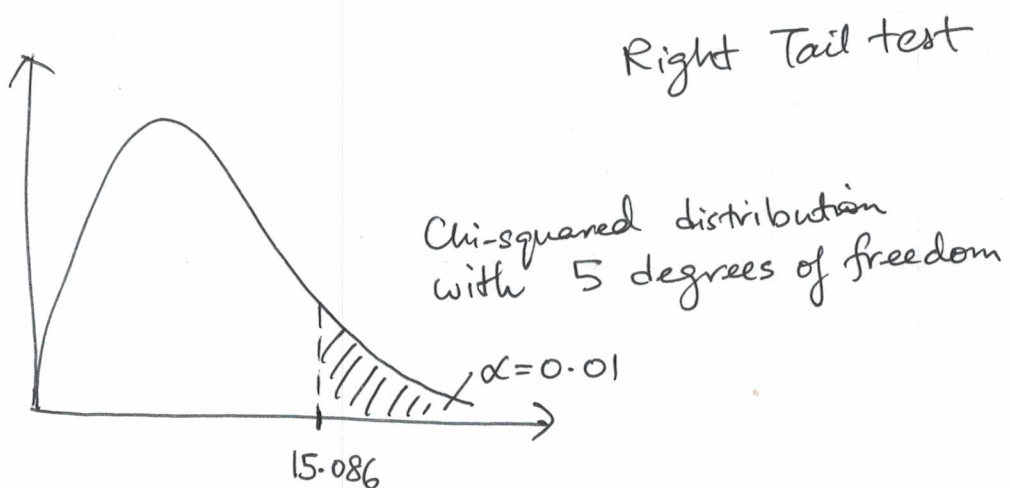 Right Tail test
Chi-squared distribution
with 5 degrees of freedom
α=0.01
15.086